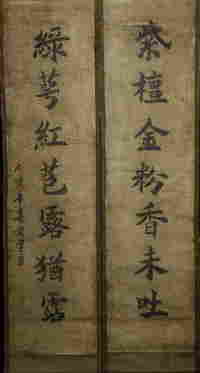 紫檀金粉香未吐
綠萼紅苞露猶霑